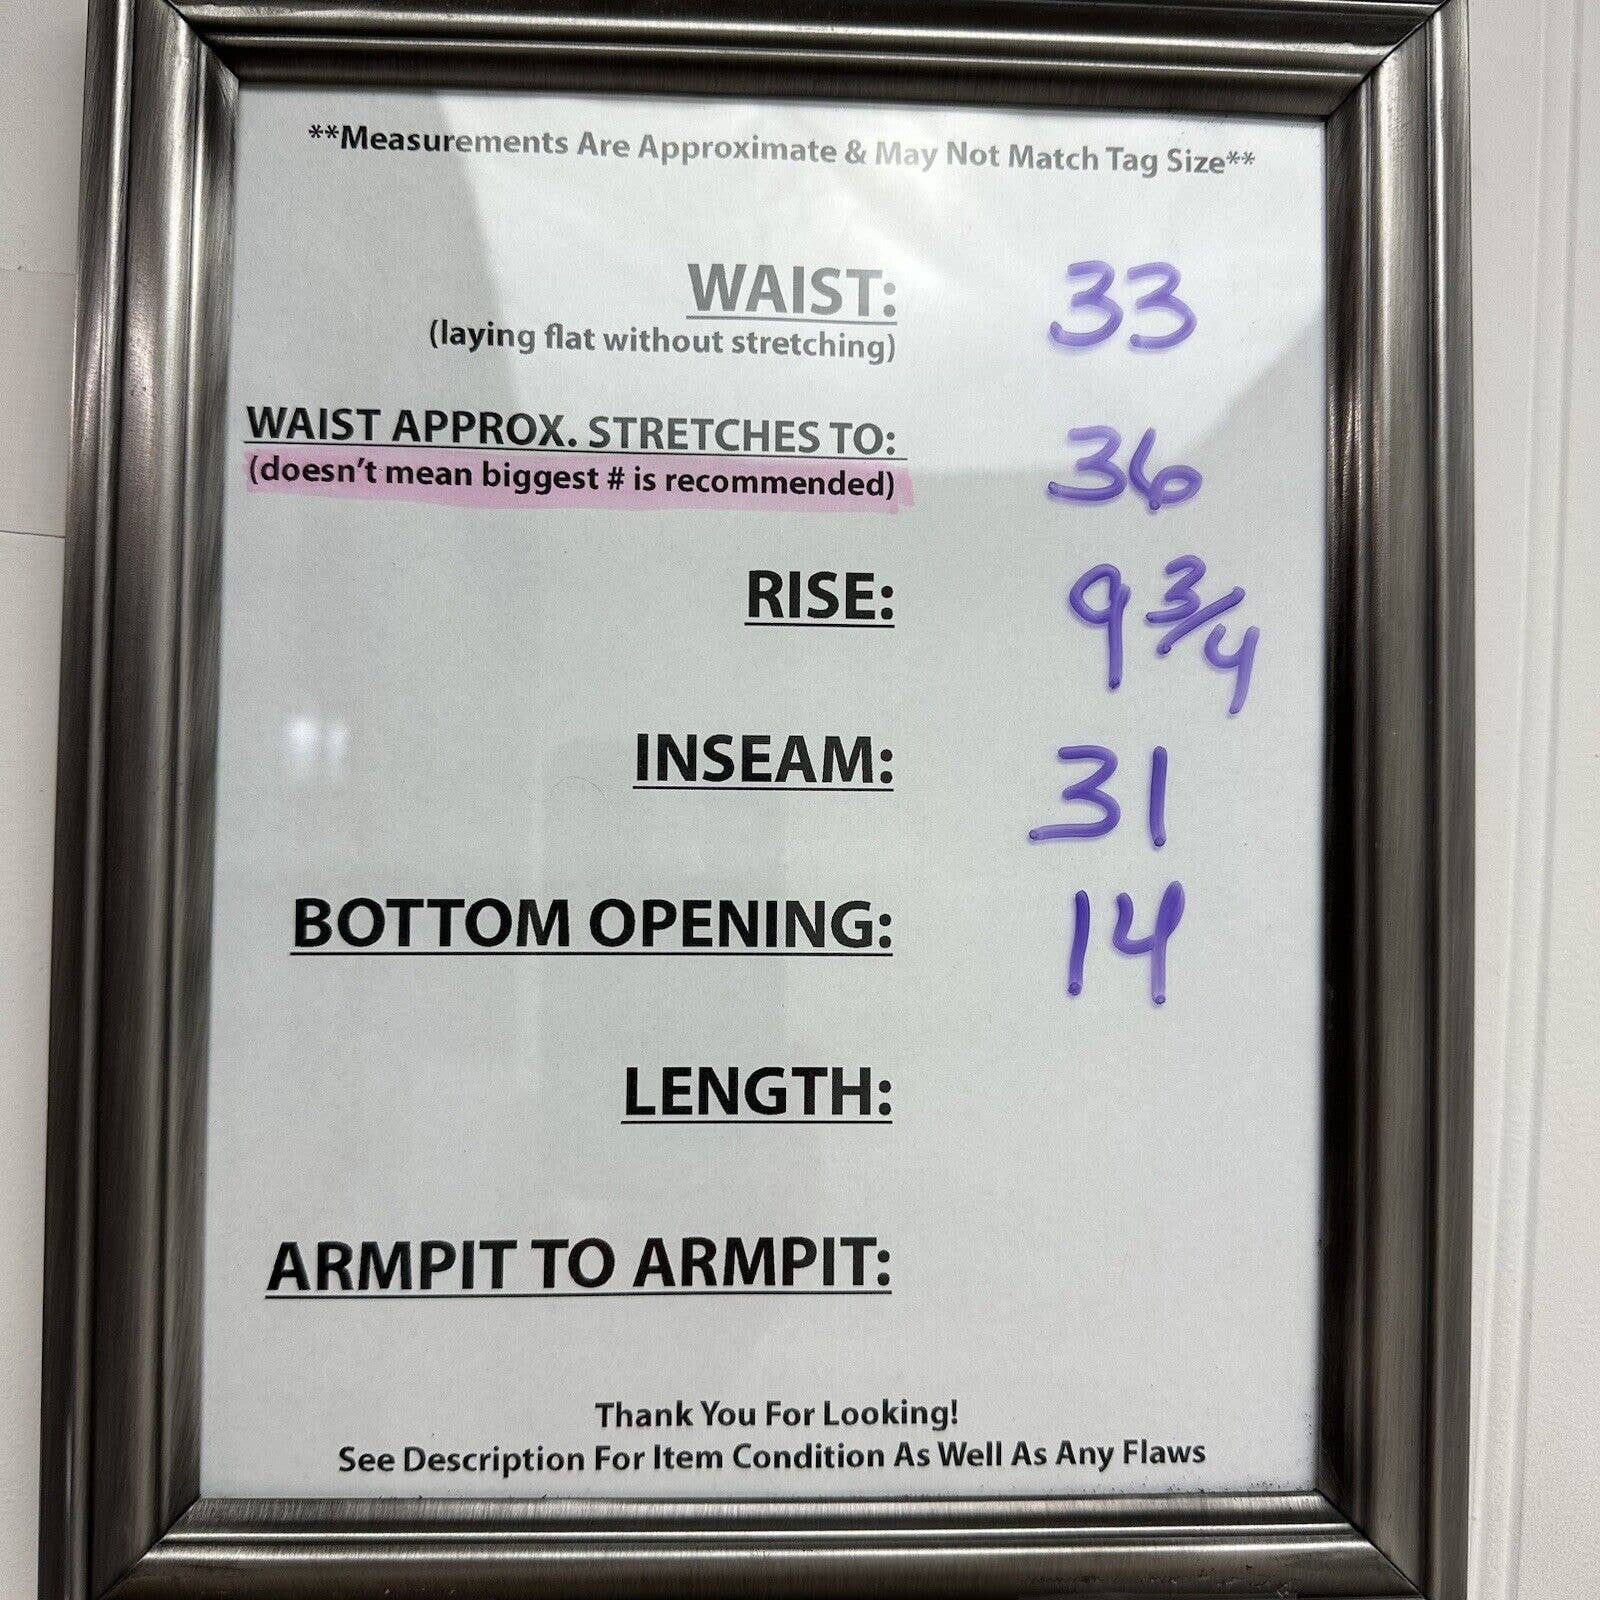 **Measurements Are Approximate & May Not Match Tag Size**
WAIST: 33
(laying flat without stretching)
WAIST APPROX. STRETCHES TO: 36
(doesn't mean biggest # is recommended)
RISE: 9 3/4
INSEAM: 31
BOTTOM OPENING: 14
LENGTH:
ARMPIT TO ARMPIT:
Thank You For Looking!
See Description For Item Condition As Well As Any Flaws